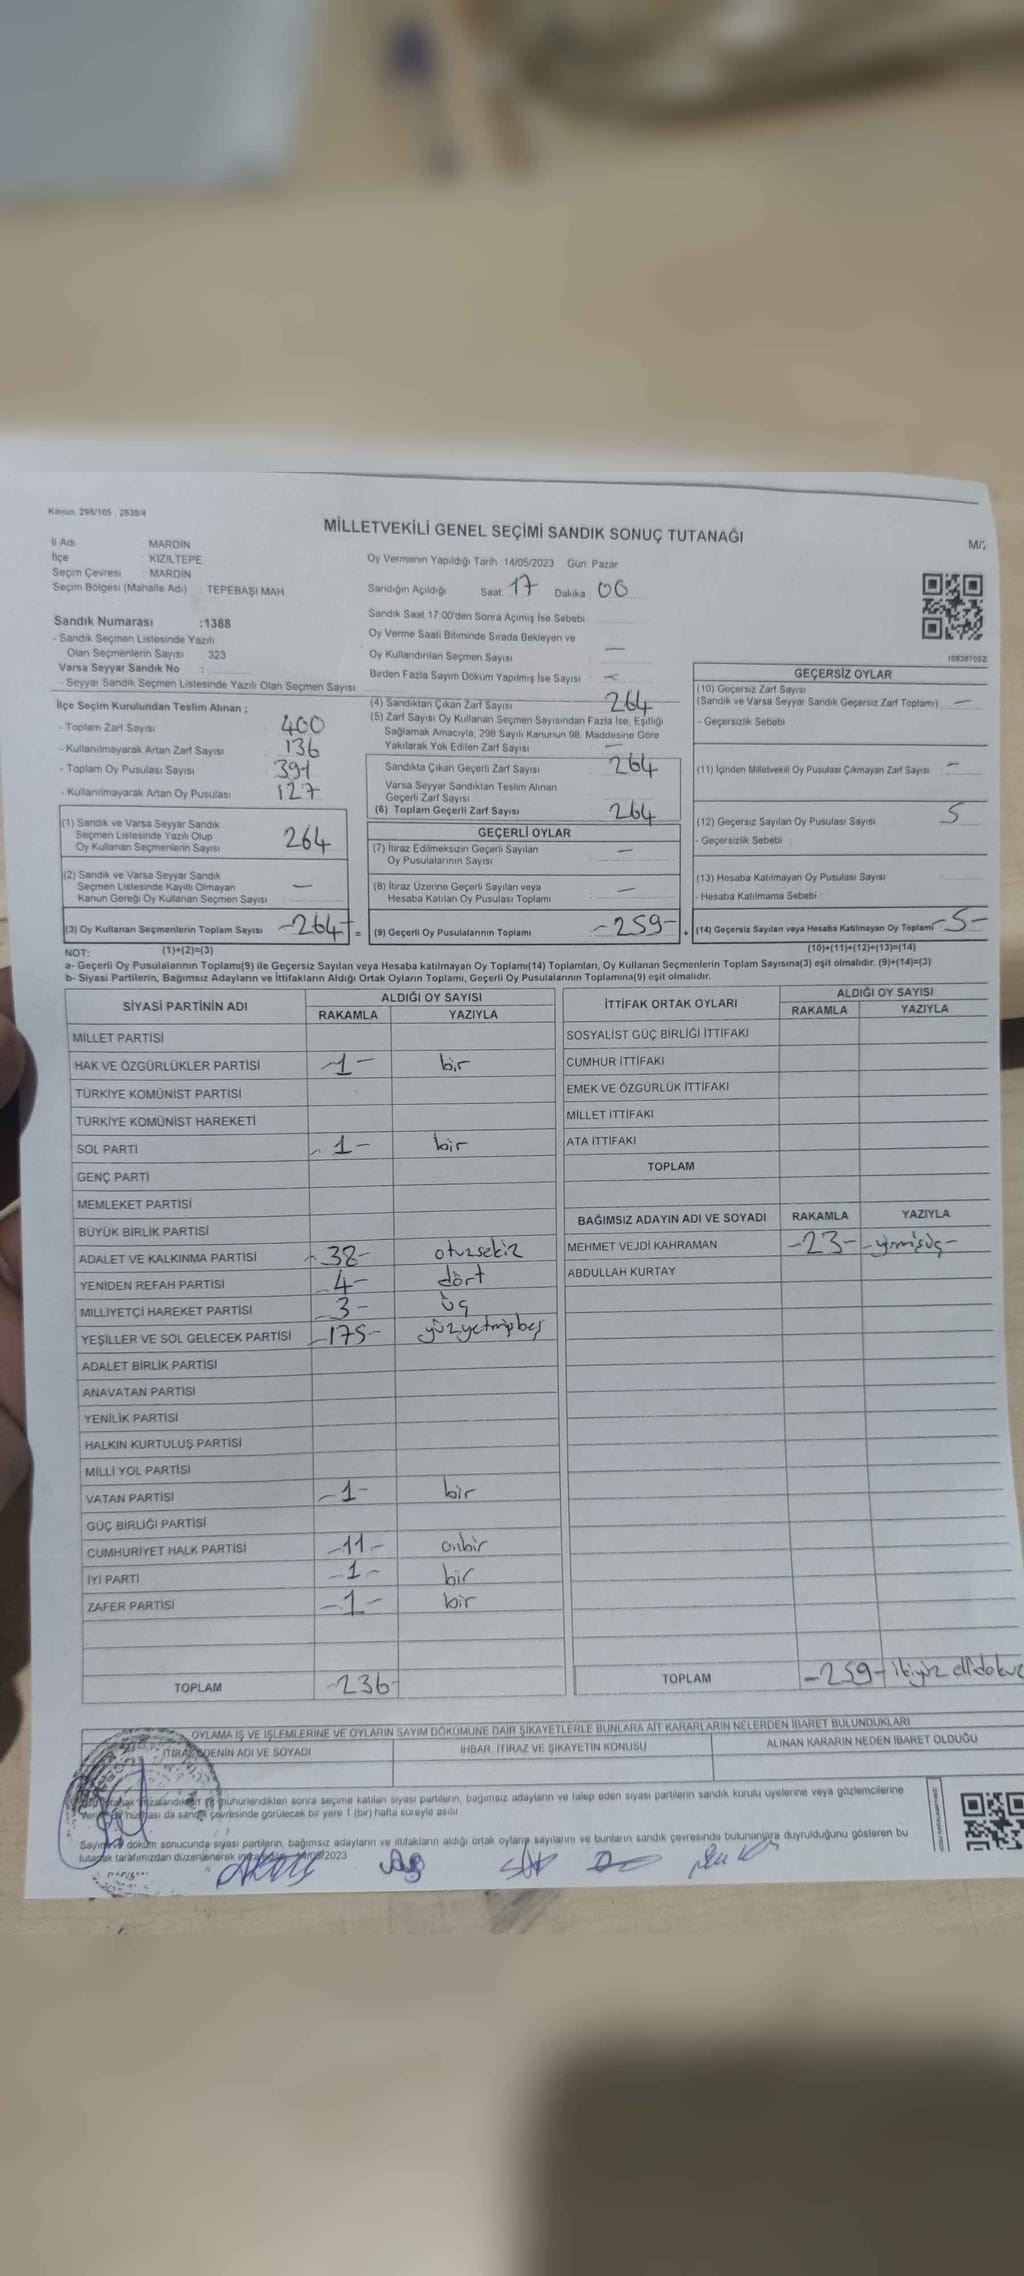 Kanun, 298/105 , 2839/4
MİLLETVEKİLİ GENEL SEÇİMİ SANDIK SONUÇ TUTANAĞI
İl Adı MARDİN
İlçe : KIZILTEPE
Seçim Çevresi MARDİN
Seçim Bölgesi (Mahalle Adı) : TEPEBAŞI MAH.
Sandık Numarası :1388
- Sandık Seçmen Listesinde Yazılı
Olan Seçmenlerin Sayısı : 323
Varsa Seyyar Sandık No :
- Seyyar Sandık Seçmen Listesinde Yazılı Olan Seçmen Sayısı
Oy Vermenin Yapıldığı Tarih : 14/05/2023 Gün: Pazar
Sandığın Açıldığı Saat: 17 Dakika : 00
Sandık Saat 17:00'den Sonra Açımış İse Sebebi :
Oy Verme Saati Bitiminde Sırada Bekleyen ve
Oy Kullandırılan Seçmen Sayısı —
Birden Fazla Sayım Döküm Yapılmış İse Sayısı
108387052
İlçe Seçim Kurulundan Teslim Alınan ;
- Toplam Zarf Sayısı : 400
- Kullanılmayarak Artan Zarf Sayısı : 136
- Toplam Oy Pusulası Sayısı : 391
- Kullanılmayarak Artan Oy Pusulası : 127
(1) Sandık ve Varsa Seyyar Sandık
Seçmen Listesinde Yazılı Olup
Oy Kullanan Seçmenlerin Sayısı : 264
(2) Sandık ve Varsa Seyyar Sandık
Seçmen Listesinde Kayıtlı Olmayan
Kanun Gereği Oy Kullanan Seçmen Sayısı : —
(3) Oy Kullanan Seçmenlerin Toplam Sayısı : -264- =
(4) Sandıktan Çıkan Zarf Sayısı : 264
(5) Zarf Sayısı Oy Kullanan Seçmen Sayısından Fazla İse, Eşitliği
Sağlamak Amacıyla, 298 Sayılı Kanunun 98. Maddesine Göre
Yakılarak Yok Edilen Zarf Sayısı : —
Sandıkta Çıkan Geçerli Zarf Sayısı : 264
Varsa Seyyar Sandıktan Teslim Alınan
Geçerli Zarf Sayısı
(6) Toplam Geçerli Zarf Sayısı : 264
GEÇERLİ OYLAR
(7) İtiraz Edilmeksizin Geçerli Sayılan
Oy Pusulalarının Sayısı : —
(8) İtiraz Üzerine Geçerli Sayılan veya
Hesaba Katılan Oy Pusulası Toplamı : —
(9) Geçerli Oy Pusulalarının Toplamı : -259- +
GEÇERSİZ OYLAR
(10) Geçersiz Zarf Sayısı
(Sandık ve Varsa Seyyar Sandık Geçersiz Zarf Toplamı) : —
- Geçersizlik Sebebi :
(11) İçinden Milletvekili Oy Pusulası Çıkmayan Zarf Sayısı : —
(12) Geçersiz Sayılan Oy Pusulası Sayısı : 5
- Geçersizlik Sebebi :
(13) Hesaba Katılmayan Oy Pusulası Sayısı :
- Hesaba Katılmama Sebebi :
(14) Geçersiz Sayılan veya Hesaba Katılmayan Oy Toplamı : -5-
NOT: (1)+(2)=(3) (10)+(11)+(12)+(13)=(14)
a- Geçerli Oy Pusulalarının Toplamı(9) ile Geçersiz Sayılan veya Hesaba katılmayan Oy Toplamı(14) Toplamları, Oy Kullanan Seçmenlerin Toplam Sayısına(3) eşit olmalıdır. (9)+(14)=(3)
b- Siyasi Partilerin, Bağımsız Adayların ve İttifakların Aldığı Oyların Toplamı, Geçerli Oy Pusulalarının Toplamına(9) eşit olmalıdır.
SİYASİ PARTİNİN ADI ALDIĞI OY SAYISI
RAKAMLA YAZIYLA
MİLLET PARTİSİ
HAK VE ÖZGÜRLÜKLER PARTİSİ -1- bir
TÜRKİYE KOMÜNİST PARTİSİ
TÜRKİYE KOMÜNİST HAREKETİ
SOL PARTİ -1- bir
GENÇ PARTİ
MEMLEKET PARTİSİ
BÜYÜK BİRLİK PARTİSİ
ADALET VE KALKINMA PARTİSİ -38- otuzsekiz
YENİDEN REFAH PARTİSİ -4- dört
MİLLİYETÇİ HAREKET PARTİSİ -3- üç
YEŞİLLER VE SOL GELECEK PARTİSİ -175- yüzyetmişbeş
ADALET BİRLİK PARTİSİ
ANAVATAN PARTİSİ
YENİLİK PARTİSİ
HALKIN KURTULUŞ PARTİSİ
MİLLİ YOL PARTİSİ
VATAN PARTİSİ -1- bir
GÜÇ BİRLİĞİ PARTİSİ
CUMHURİYET HALK PARTİSİ -11- onbir
İYİ PARTİ -1- bir
ZAFER PARTİSİ -1- bir
TOPLAM -236-
İTTİFAK ORTAK OYLARI ALDIĞI OY SAYISI
RAKAMLA YAZIYLA
SOSYALİST GÜÇ BİRLİĞİ İTTİFAKI
CUMHUR İTTİFAKI
EMEK VE ÖZGÜRLÜK İTTİFAKI
MİLLET İTTİFAKI
ATA İTTİFAKI
TOPLAM
BAĞIMSIZ ADAYIN ADI VE SOYADI RAKAMLA YAZIYLA
MEHMET VEJDİ KAHRAMAN -23- -yirmiüç-
ABDULLAH KURTAY
TOPLAM -259- ikiyüz ellidokuz
OYLAMA İŞ VE İŞLEMLERİNE VE OYLARIN SAYIM DÖKÜMÜNE DAİR ŞİKAYETLERLE BUNLARA AİT KARARLARIN NELERDEN İBARET BULUNDUKLARI
İTİRAZ EDENİN ADI VE SOYADI İHBAR, İTİRAZ VE ŞİKAYETİN KONUSU ALINAN KARARIN NEDEN İBARET OLDUĞU
mühürlendikten sonra seçime katılan siyasi partilerin, bağımsız adayların ve talep eden siyasi partilerin sandık kurulu üyelerine veya gözlemcilerine
da sandık çevresinde görülecek bir yere 1 (bir) hafta süreyle asılır.
Sayım ve döküm sonucunda siyasi partilerin, bağımsız adayların ve ittifakların aldığı ortak oyların sayılarını ve bunların sandık çevresinde bulunanlara duyrulduğunu gösteren bu
tutanak tarafımızdan düzenlenerek 14/05/2023